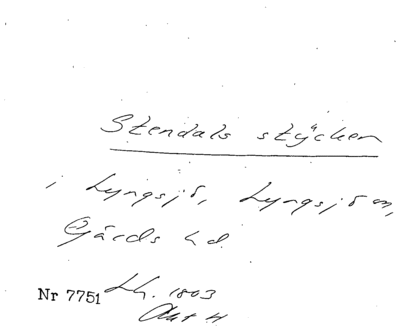 Stendals stÿcken
i Lyngsjö, Lyngsjö sn,
Gärds hd.
Nr 7751 Lh. 1803
Akt 4